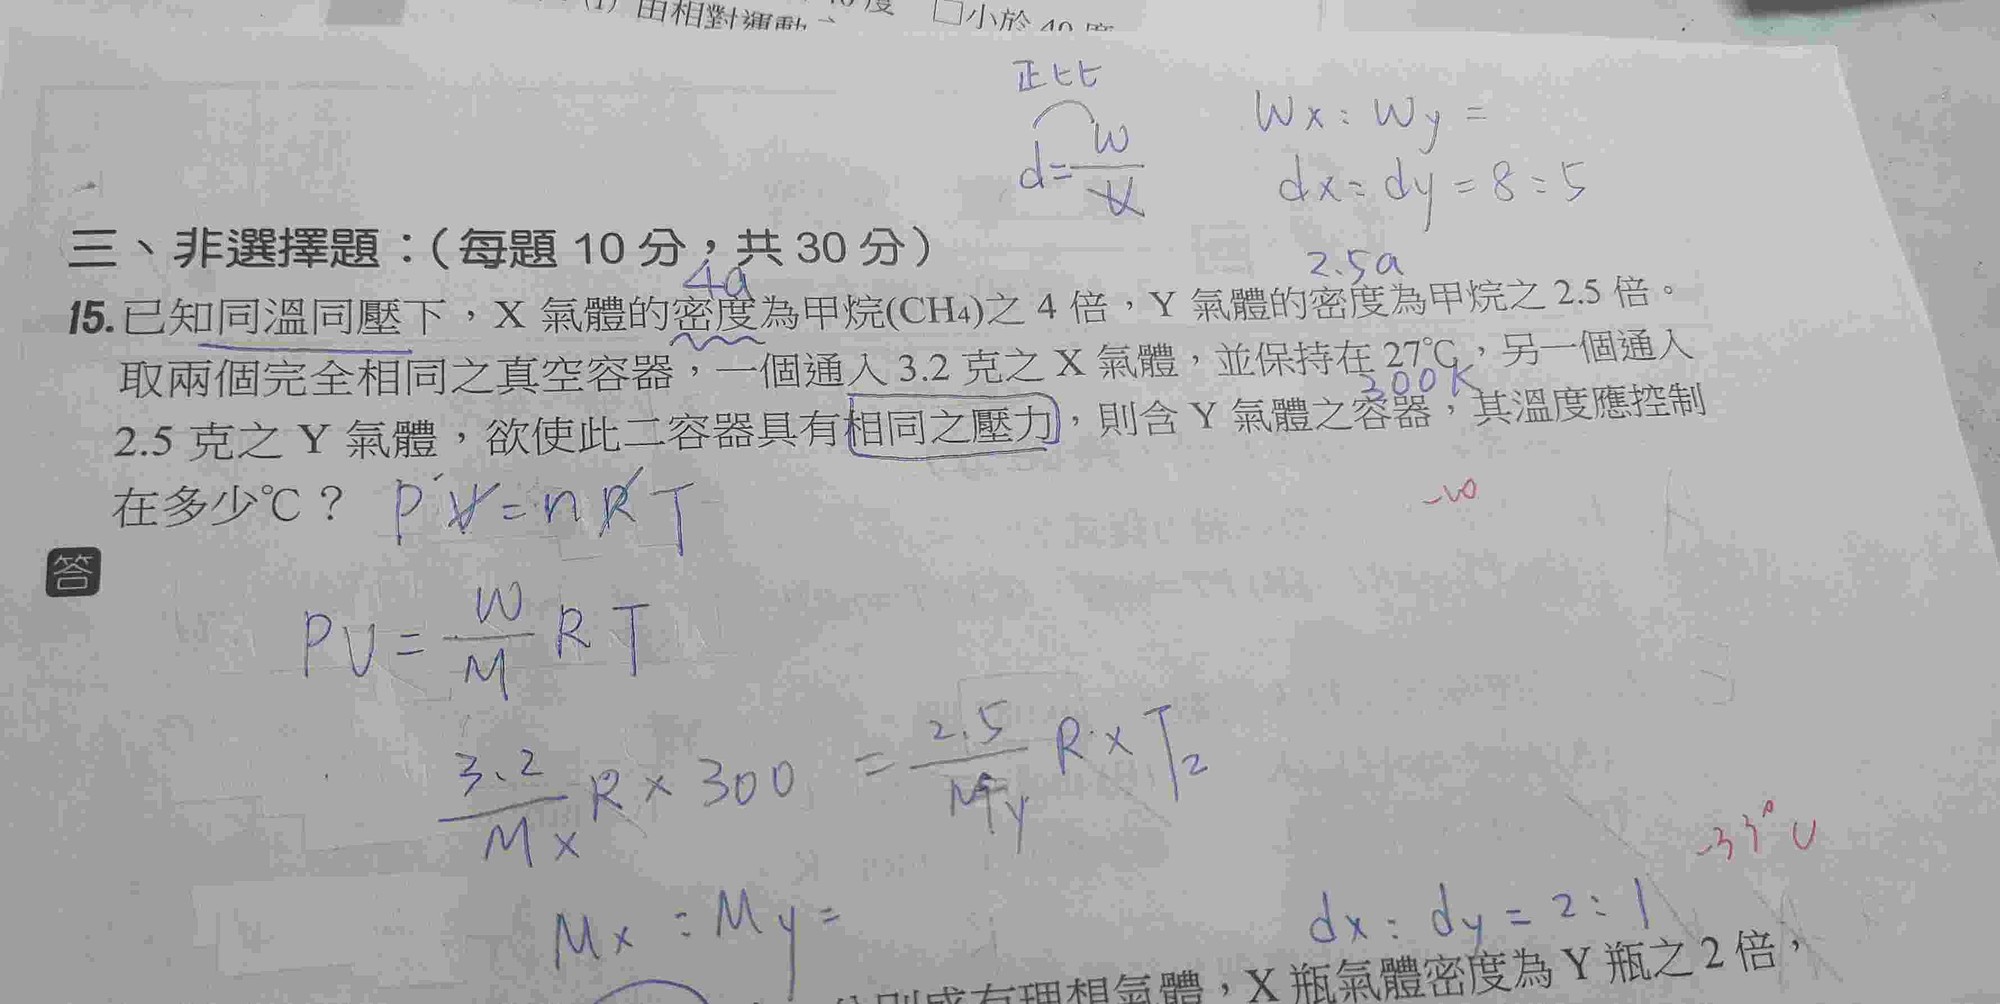 (1) 由相對運動
□小於 40 度
正比
d=W/V
Wx : Wy =
dx : dy = 8 : 5
三、非選擇題：（每題 10 分，共 30 分）
4a
2.5a
15. 已知同溫同壓下，X 氣體的密度為甲烷(CH₄)之 4 倍，Y 氣體的密度為甲烷之 2.5 倍。
取兩個完全相同之真空容器，一個通入 3.2 克之 X 氣體，並保持在 27℃，另一個通入
300K
2.5 克之 Y 氣體，欲使此二容器具有相同之壓力，則含 Y 氣體之容器，其溫度應控制
在多少℃？ PV=nRT
-10
答
PV = W/M RT
3.2/Mx R × 300 = 2.5/My R × T₂
Mx : My =
dx : dy = 2 : 1
理想氣體，X 瓶氣體密度為 Y 瓶之 2 倍，